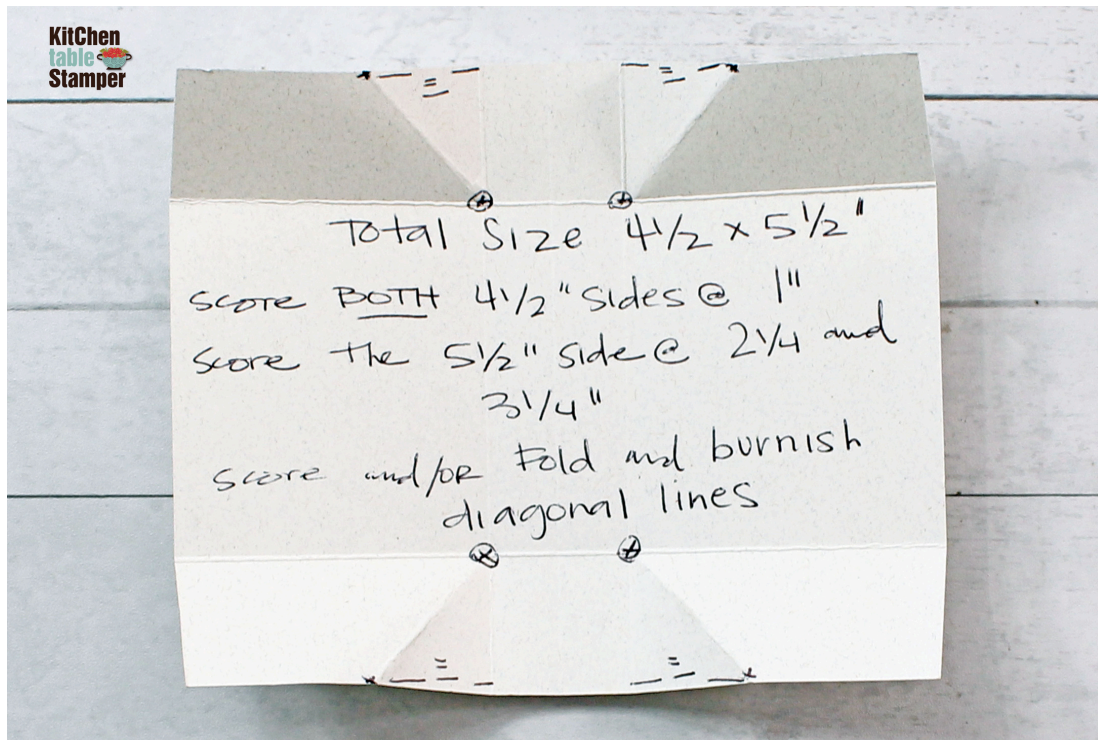 KitChen
table
Stamper
Total Size 4 1/2 x 5 1/2"
Score BOTH 4 1/2" sides @ 1"
Score the 5 1/2" side @ 2 1/4 and
3 1/4"
Score and/or Fold and burnish
diagonal lines